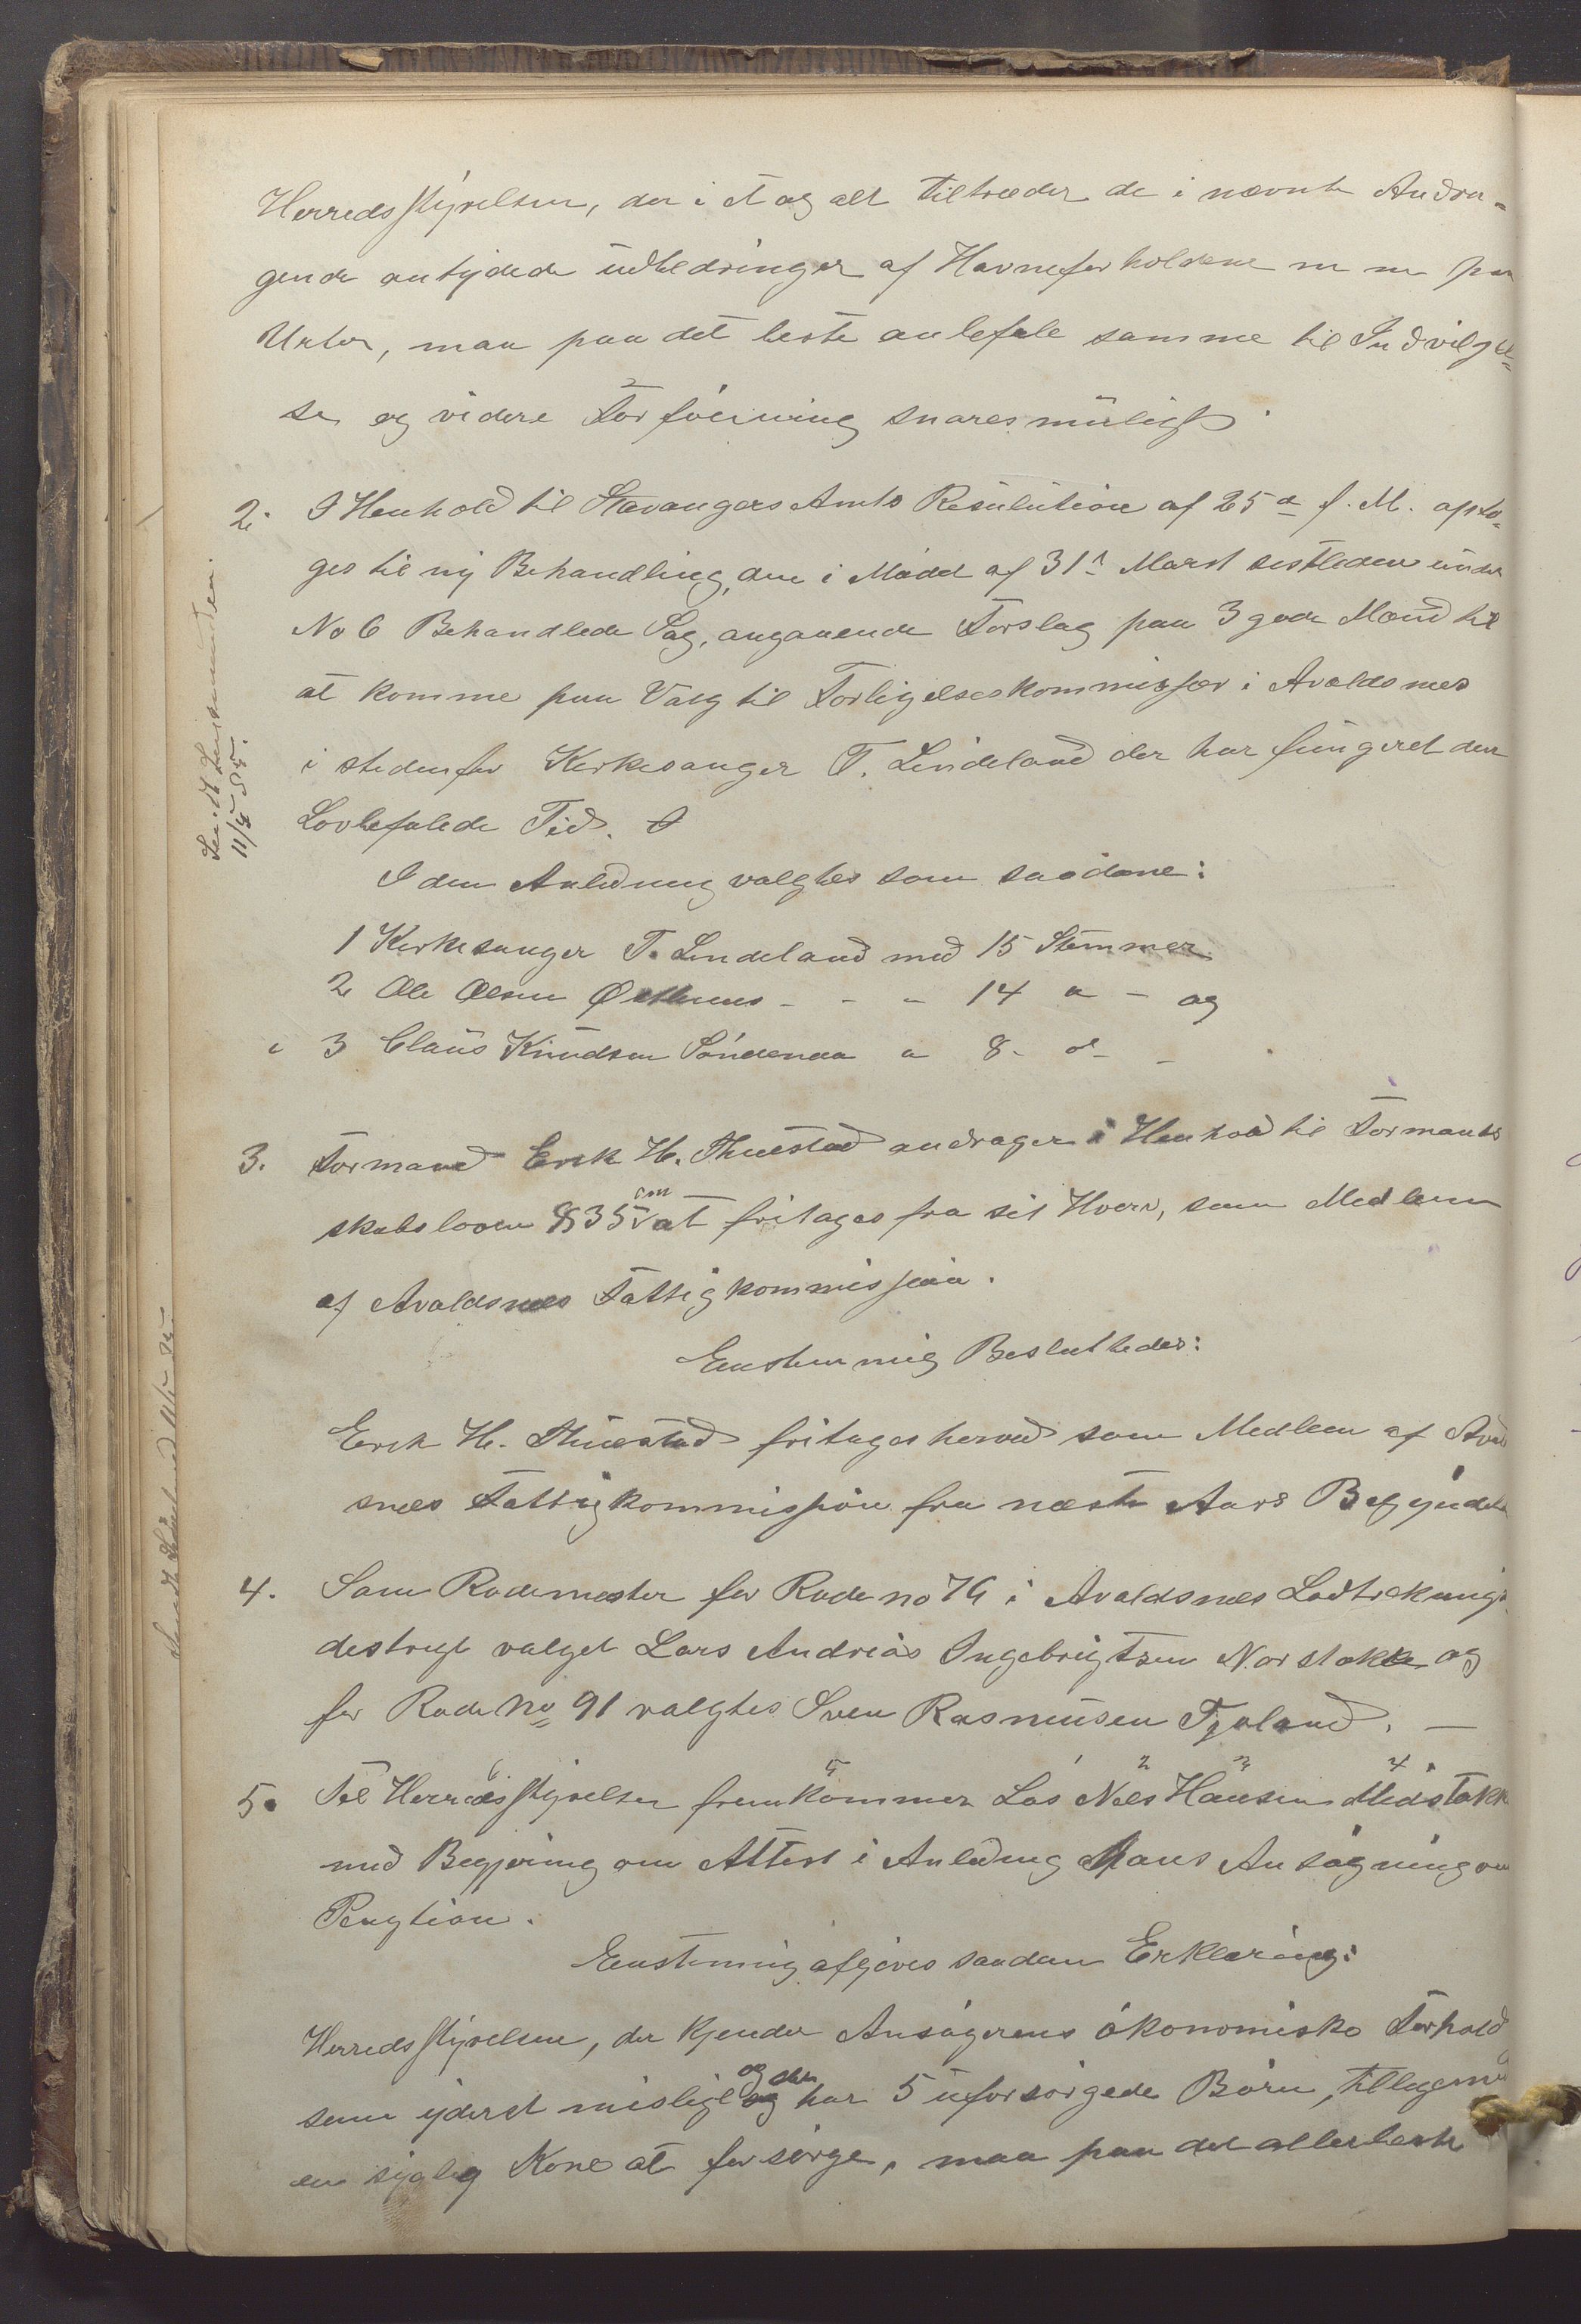 Herredsstyrelsen, der i et og alt tiltræder de i nævnte Andra-
gende antydede udbedringer af Havneforholdene m m paa
Utsir, maa paa det beste anbefale samme til Indvilgel-
se og videre Forføining snaresmuligt.
2. I Henhold til Stavangers Amts Resulution af 25de f. M. opto-
ges til ny Behandling, den i Mødet af 31te Marst sistleden under
No 6 Behandlede Sag, angaaende Forslag paa 3 gode Mænd til
at komme paa Valg til Forligelseskommissær i Avaldsnes
i stedenfor Kirkesanger T. Lindeland der har fungeret den
Lovbefalede Tid.
I den Anledning valgtes som saadane:
1 Kirkesanger T. Lindeland med 15 Stemmer
2 Ole Olsen Østhuus - - - 14 " - og
3 Claus Knudsen Søndenaa " 8 - " -
3. Formand Erik H. Thuestad andrager i Henhold til Formands
skabsloven § 35 om at fritages fra sit Hverv, som Medlem
af Avaldsnes Fattigkommission.
Enstemmig Besluttedes:
Erik H. Thuestad fritages herved som Medlem af Avald
snes Fattigkommission fra næste Aars Begyndelse
4. Som Rodemester for Rode no 74 i Avaldsnes Lodtrekings
destrigt valget Lars Andreas Ingebrigtsen Norstokke og
for Rode No 91 valgtes Sven Rasmusen Tjoland. —
5. Til Herredsstyrelsen fremkommer Los Nels Hansen Midstokke
med Begjæring om Attest i Anledning Hans Ansøgning om
Pengtion.
Enstemig afgives saadan Erklæring:
Herredsstyrelsen, der kjender Ansøgerens økonomiske Forhold
som yderst misligt og der har 5 uforsørgede Børn, tillegemed
en sygelig Kone at forsørge, maa paa det allerbeste
Sendt Lensmanden.
11/5 85.
Sendt 11/5 85